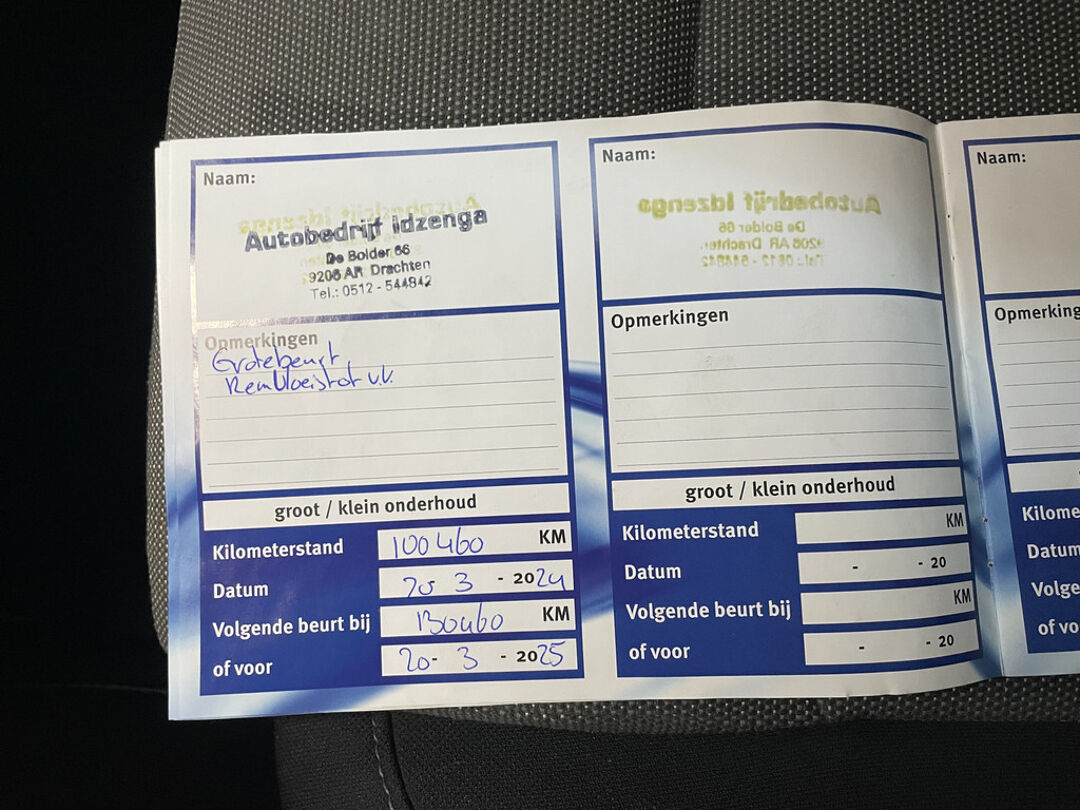 Naam:
Autobedrijf Idzenga
De Bolder 66
9206 AR Drachten
Tel.: 0512 - 544842
Opmerkingen
Grotebeurt
Remvloeistof v.v.
groot / klein onderhoud
Kilometerstand 100460 KM
Datum 20 3 - 2024
Volgende beurt bij 130460 KM
of voor 20- 3 - 2025
Naam:
Autobedrijf Idzenga
De Bolder 66
9206 AR Drachten
Tel.: 0512 - 544842
Opmerkingen
groot / klein onderhoud
Kilometerstand KM
Datum - - 20
Volgende beurt bij KM
of voor - - 20
Naam:
Opmerking
Kilome
Datum
Volge
of vo